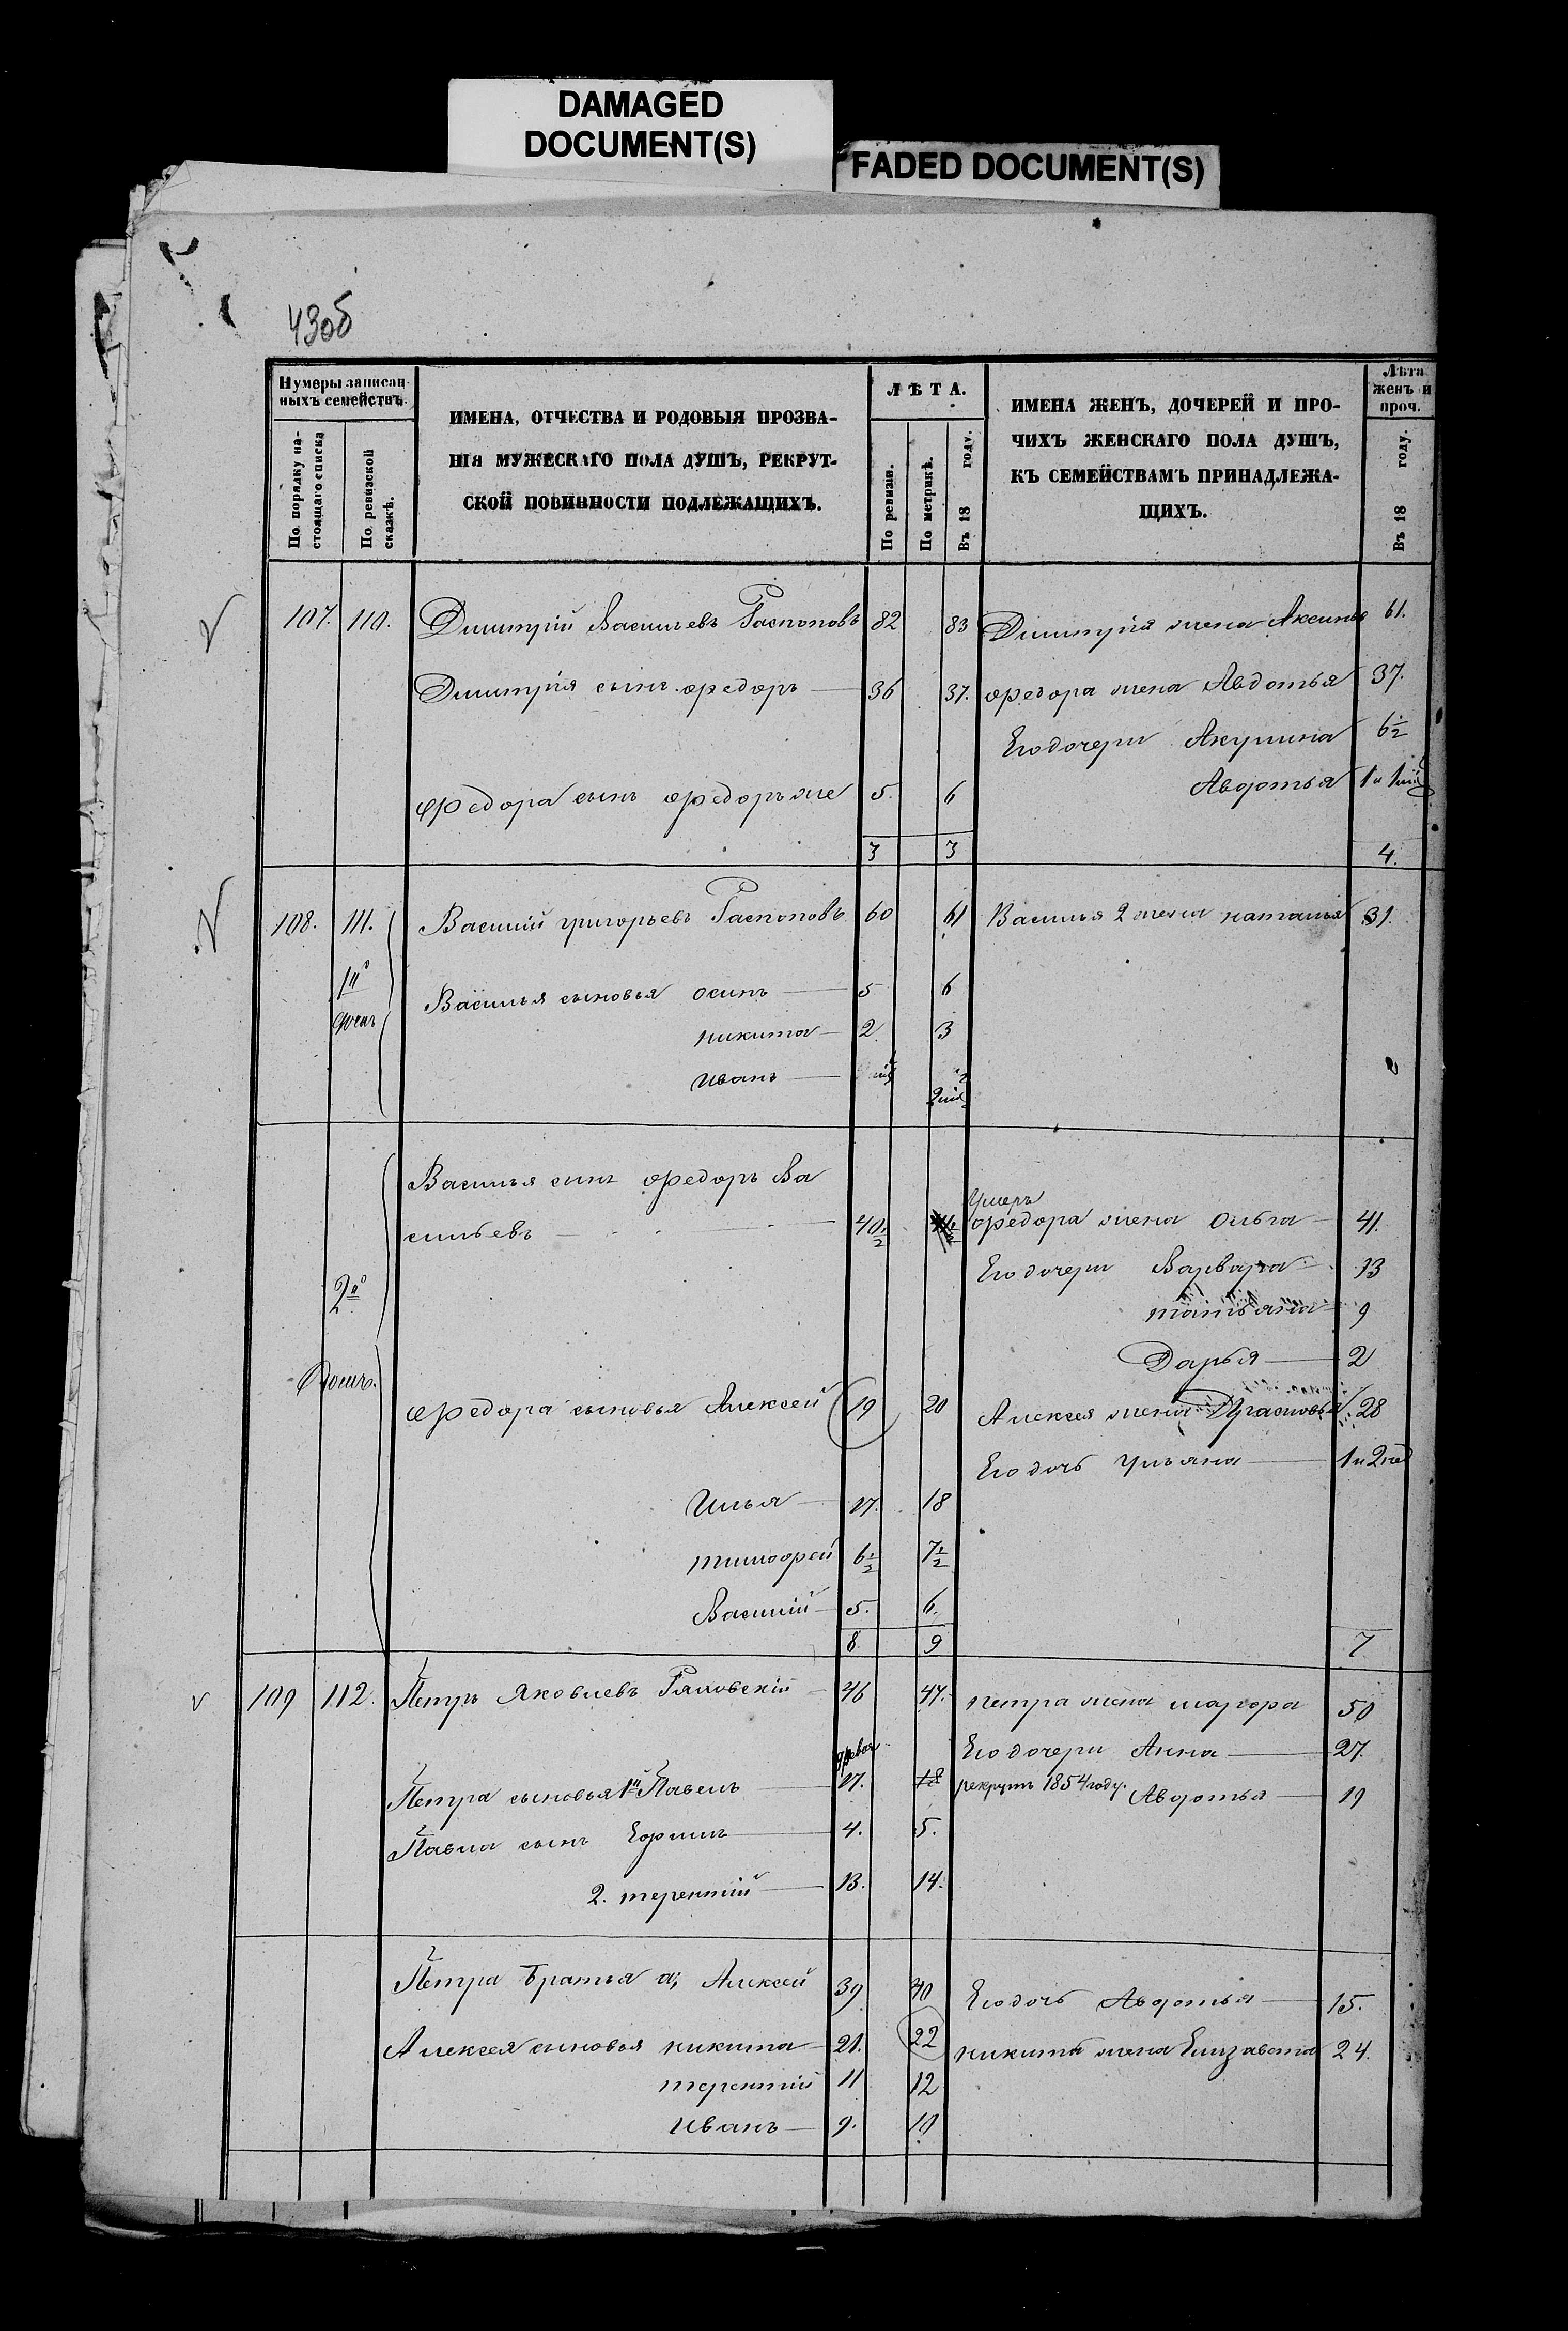 DAMAGED
DOCUMENT(S)
FADED DOCUMENT(S)
43об
Нумеры записан-
ныхъ семействъ.
По порядку на-
стоящаго списка
По ревизской
сказкѣ.
ИМЕНА, ОТЧЕСТВА И РОДОВЫЯ ПРОЗВА-
НІЯ МУЖЕСКАГО ПОЛА ДУШЪ, РЕКРУТ-
СКОЙ ПОВИННОСТИ ПОДЛЕЖАЩИХЪ.
ЛѢТА.
По ревизіи.
По метрикѣ.
Въ 18 году.
ИМЕНА ЖЕНЪ, ДОЧЕРЕЙ И ПРО-
ЧИХЪ ЖЕНСКАГО ПОЛА ДУШЪ,
КЪ СЕМЕЙСТВАМЪ ПРИНАДЛЕЖА-
ЩИХЪ.
Лѣта
женъ и
проч.
Въ 18 году.
107. 110. Димитрій Васильевъ Распоповъ 82 83 Димитрія жена Аксинья 61.
Димитрія сынъ Федоръ 36 37. Федора жена Авдотья 37.
Его дочери Акулина 6½
Федора сынъ Федоръ же 5. 6 Авдотья 1 и 1
3 3 4.
108. 111. Василій Григорьевъ Распоповъ 60 61 Василья 2 жена Наталья 31.
1й
Василья сыновья Осипъ 5 6
Никита 2. 3
Иванъ
Василья сынъ Федоръ Ва
сильевъ 40½ умеръ Федора жена Ольга 41.
Его дочери Варвара 13
2й
Татьяна 9
Дарья 2
Федора сыновья Алексей 19 20 Алексея жена Прасковья 28
Его дочь Ульяна 1 и 2
Илья 17. 18
Тимофей 6½ 7½
Василій 5. 6.
8 9 7
109 112. Петръ Яковлевъ 46 47. Петра жена 50
Его дочери Анна 27.
Петра сыновья 1й Павелъ 17. 18 рекрутъ 1854 году. Авдотья 19
Павла сынъ Ефимъ 4. 5.
2. Терентій 13. 14.
Петра Братья а, Алексей 39 40 Его дочь Авдотья 15.
Алексея сыновья Никита 21. 22 Никиты жена Елизавета 24.
Терентій 11 12
Иванъ 9. 10